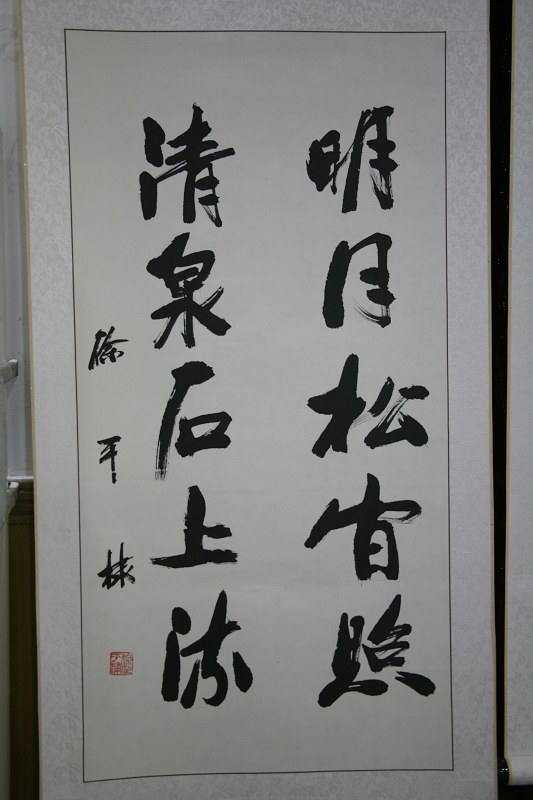 明月松间照
清泉石上流
徐平林